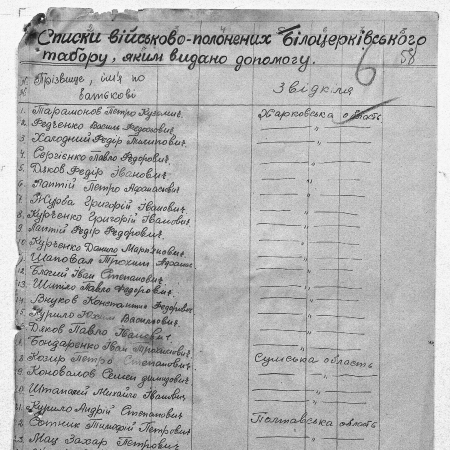 Списки військово-полонених Білоцерківського
табору, яким видано допомогу.
6 58
N Прізвище, ім'я по Звідкіля
N батькові
1. Тарамонов Петро Кузьмич Харковська область
2. Федченко Василь Федорович "
3. Холодний Федір Пилипович "
4. Сергієнко Павло Федорович "
5. Дяков Федір Іванович "
6. Лаптій Петро Афанасович "
7. Журба Григорій Іванович "
8. Курченко Григорій Іванович "
9. Лаптій Федір Федорович "
10. Курченко Данило "
Шаповал Трохим "
12. Благий Іван Степанович "
13. Шитло Павло Федорович "
14. Внуков Константин Федорович "
15. Курило Василович "
Дяков Павло Іванович "
Бондаренко Іван "
8. Козир Петро Степанович Сумська область
9. Коновалов Семен "
10 Штань Михайло Іванович "
Курило Андрій Степанович "
2. Сотник Тимофій Петрович Полтавська область
3. Мац Захар Петрович "